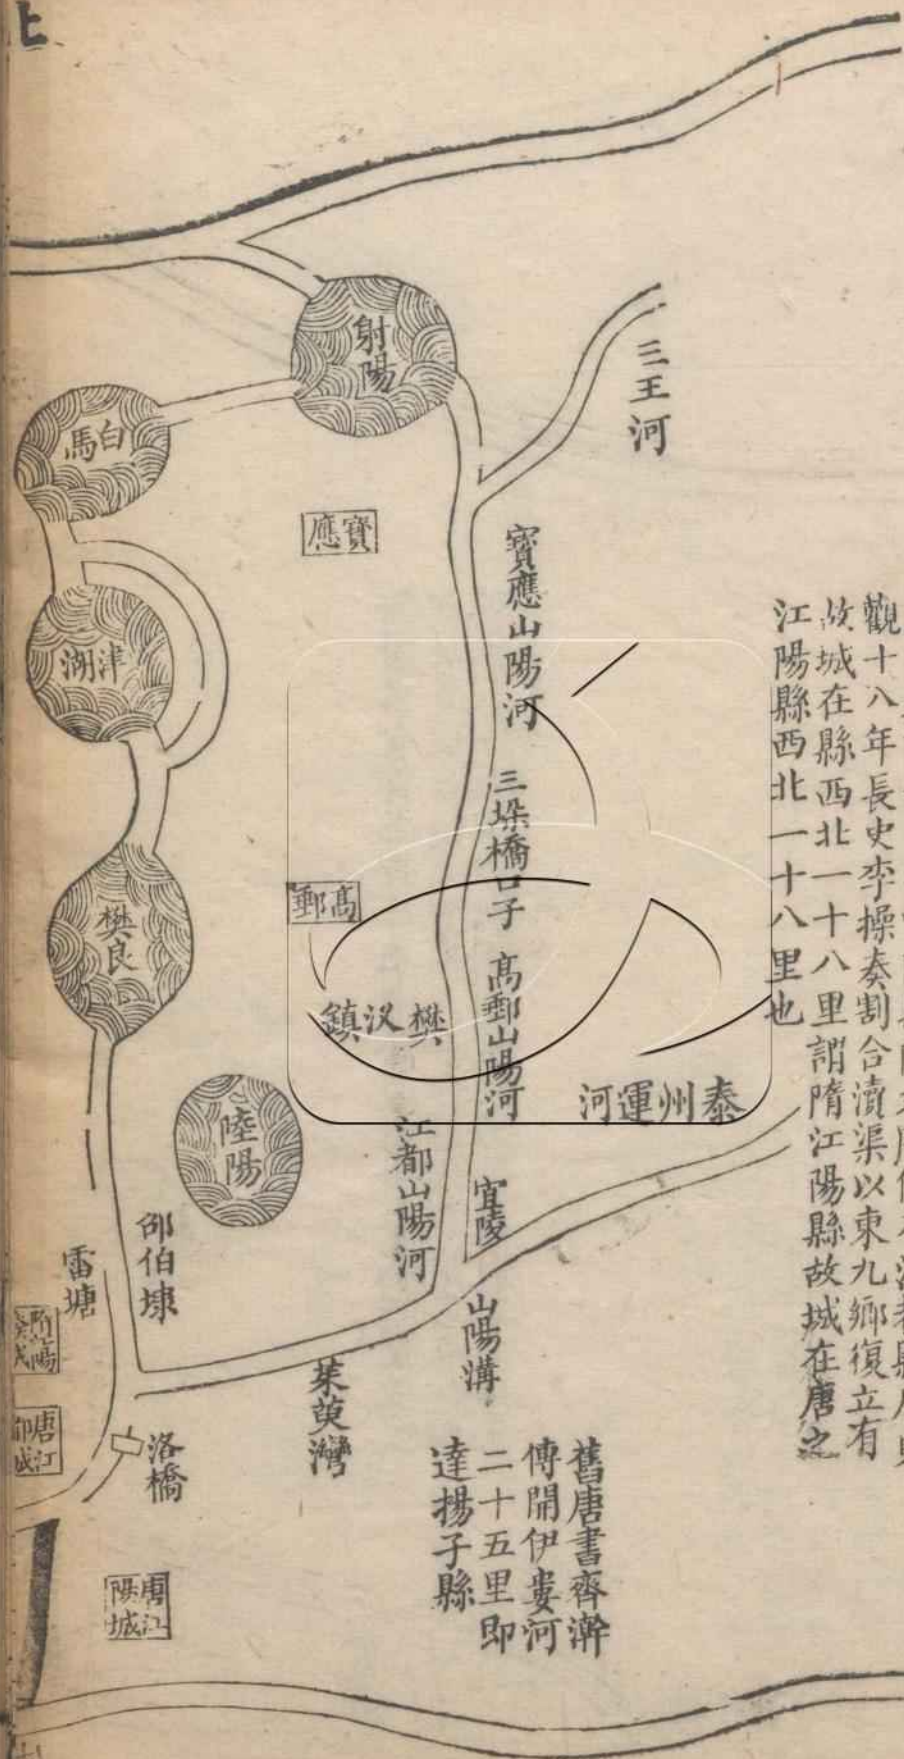 北
射陽
三王河
白馬
寶應
寶應山陽河
津湖
三垛橋口子
高郵
樊良
高郵山陽河
樊汊鎮
泰州運河
陸陽
江都山陽河
宜陵
邵伯埭
雷塘
山陽溝
茱萸灣
唐江都城
洛橋
唐江陽城
觀十八年長史李操奏割合瀆渠以東九鄉復立有
故城在縣西北一十八里謂隋江陽縣故城在唐之
江陽縣西北一十八里也
舊唐書齊澣
傳開伊婁河
二十五里即
達揚子縣